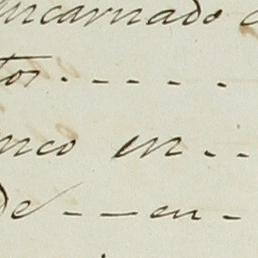 encarnado
tos . - - - - .
nco en - - -
de - - en -